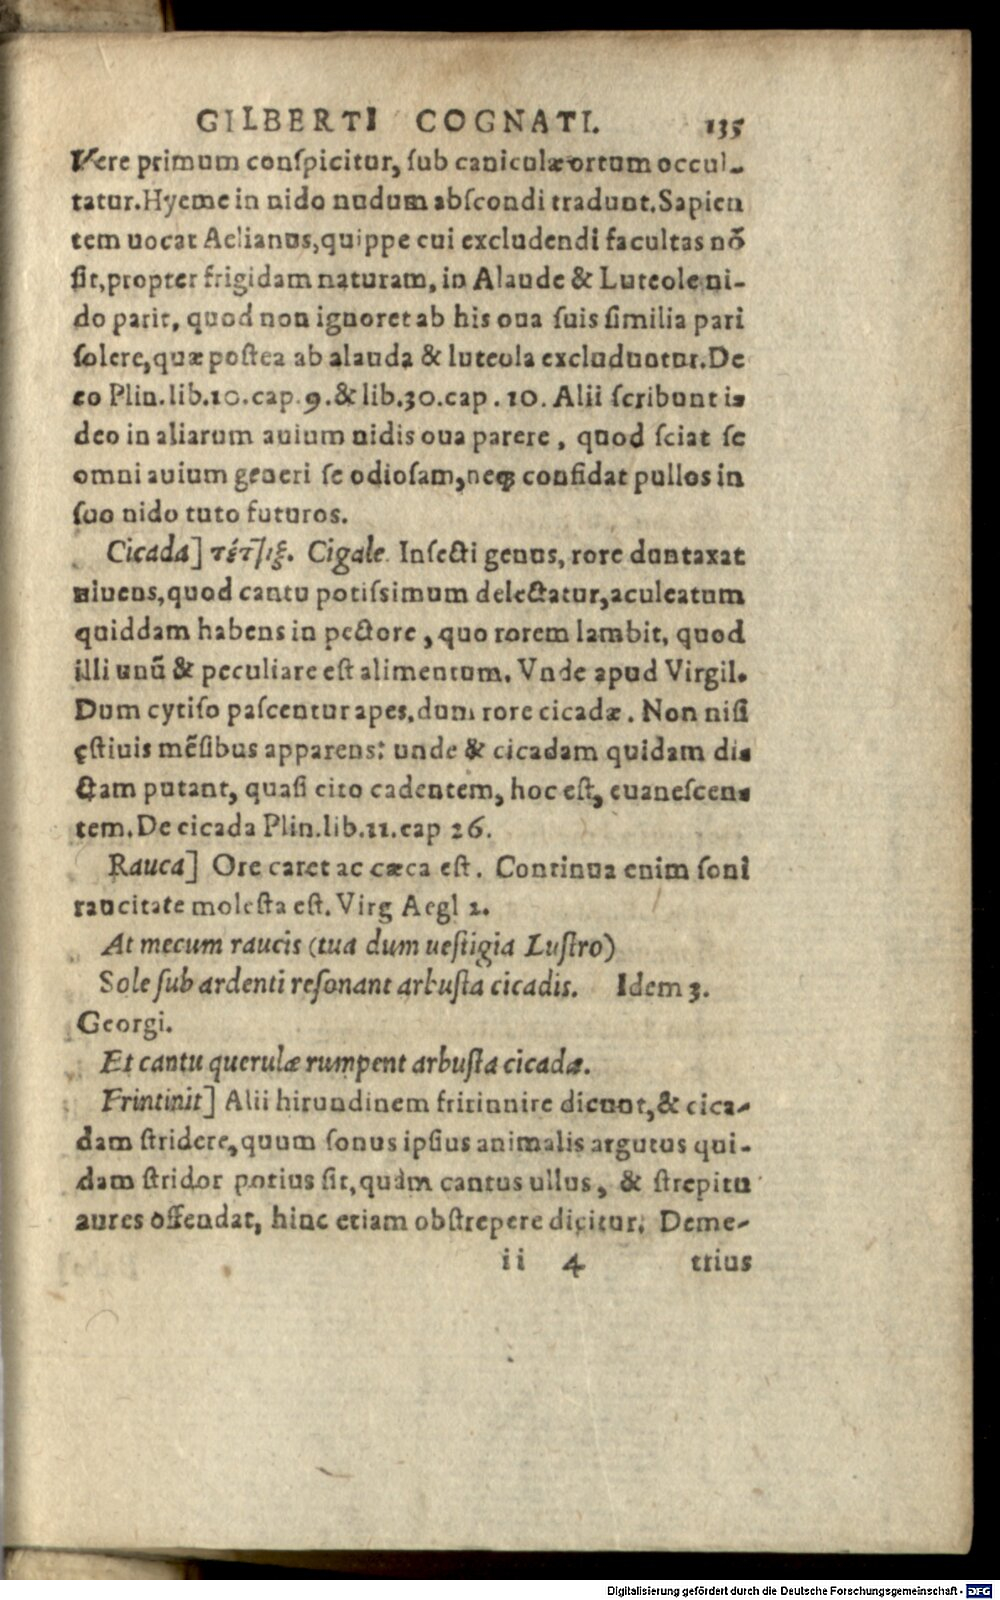 GILBERTI COGNATI. 135
Vere primum conſpicitur, ſub caniculæ ortum occul-
tatur. Hyeme in nido nudum abſcondi tradunt. Sapien
tem uocat Aelianus, quippe cui excludendi facultas nō
ſit, propter frigidam naturam, in Alaudę & Luteolę ni-
do parit, quod non ignoret ab his oua ſuis ſimilia pari
ſolere, quæ poſtea ab alauda & luteola excluduntur. De
eo Plin. lib. 10. cap. 9. & lib. 30. cap. 10. Alii ſcribunt i-
deo in aliarum auium nidis oua parere, quod ſciat ſe
omni auium generi ſe odioſam, neq; confidat pullos in
ſuo nido tuto futuros.
Cicada] τέττιξ. Cigale. Inſecti genus, rore duntaxat
uiuens, quod cantu potiſsimum delectatur, aculeatum
quiddam habens in pectore, quo rorem lambit, quod
illi unū & peculiare eſt alimentum. Vnde apud Virgil.
Dum cytiſo paſcentur apes, dum rore cicadæ. Non niſi
ęſtiuis mēſibus apparens: unde & cicadam quidam di-
ctam putant, quaſi cito cadentem, hoc eſt, euaneſcen-
tem. De cicada Plin. lib. 11. cap 26.
Rauca] Ore caret ac cæca eſt. Continua enim ſoni
raucitate moleſta eſt. Virg Aegl 2.
At mecum raucis (tua dum ueſtigia Luſtro)
Sole ſub ardenti reſonant arbuſta cicadis. Idem 3.
Georgi.
Et cantu querulæ rumpent arbuſta cicadæ.
Frintinit] Alii hirundinem fritinnire dicunt, & cica-
dam ſtridere, quum ſonus ipſius animalis argutus qui-
dam ſtridor potius ſit, quàm cantus ullus, & ſtrepitu
aures offendat, hinc etiam obſtrepere dicitur. Deme-
ii 4 trius
Digitalisierung gefördert durch die Deutsche Forschungsgemeinschaft - DFG